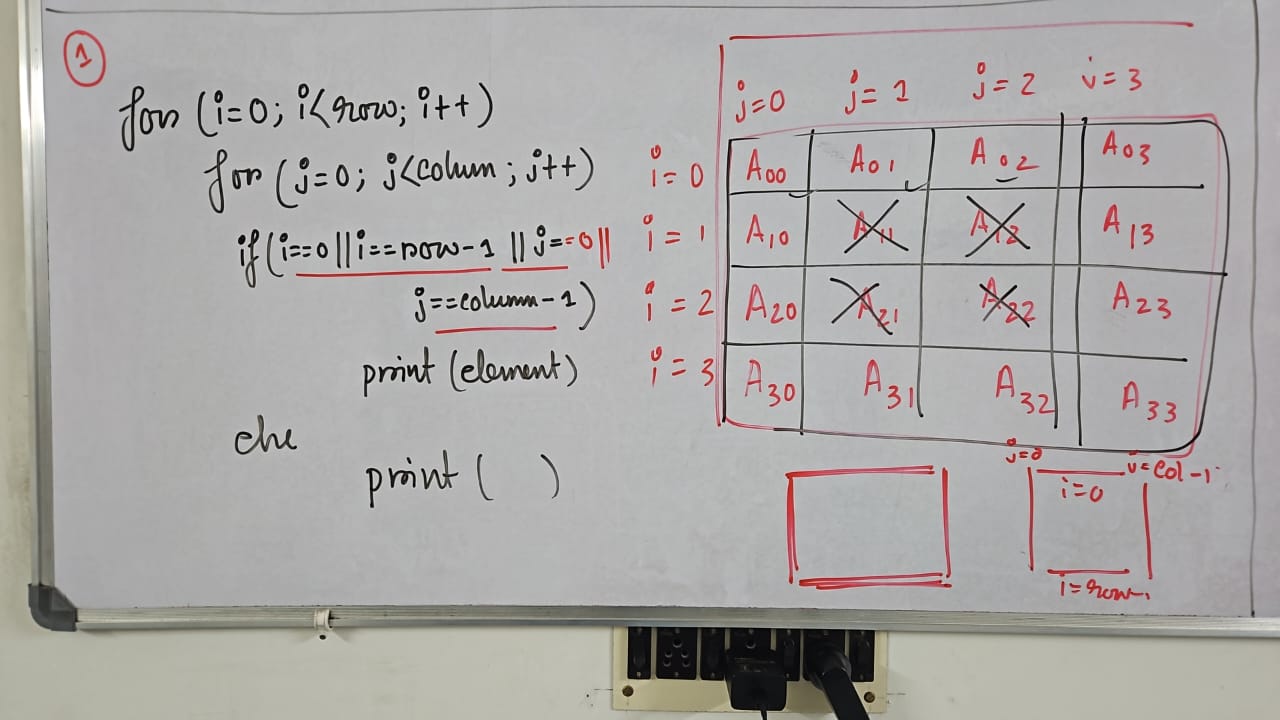 1
for (i=0; i<row; i++)
for (j=0; j<colum; j++)
if (i==0 || i==row-1 || j==0 ||
j==column-1)
print (element)
else
print ( )
j=0 j=1 j=2 j=3
i=0 A00 A01 A02 A03
i=1 A10 A11 A12 A13
i=2 A20 A21 A22 A23
i=3 A30 A31 A32 A33
j=0 j=col-1
i=0
i=row-1